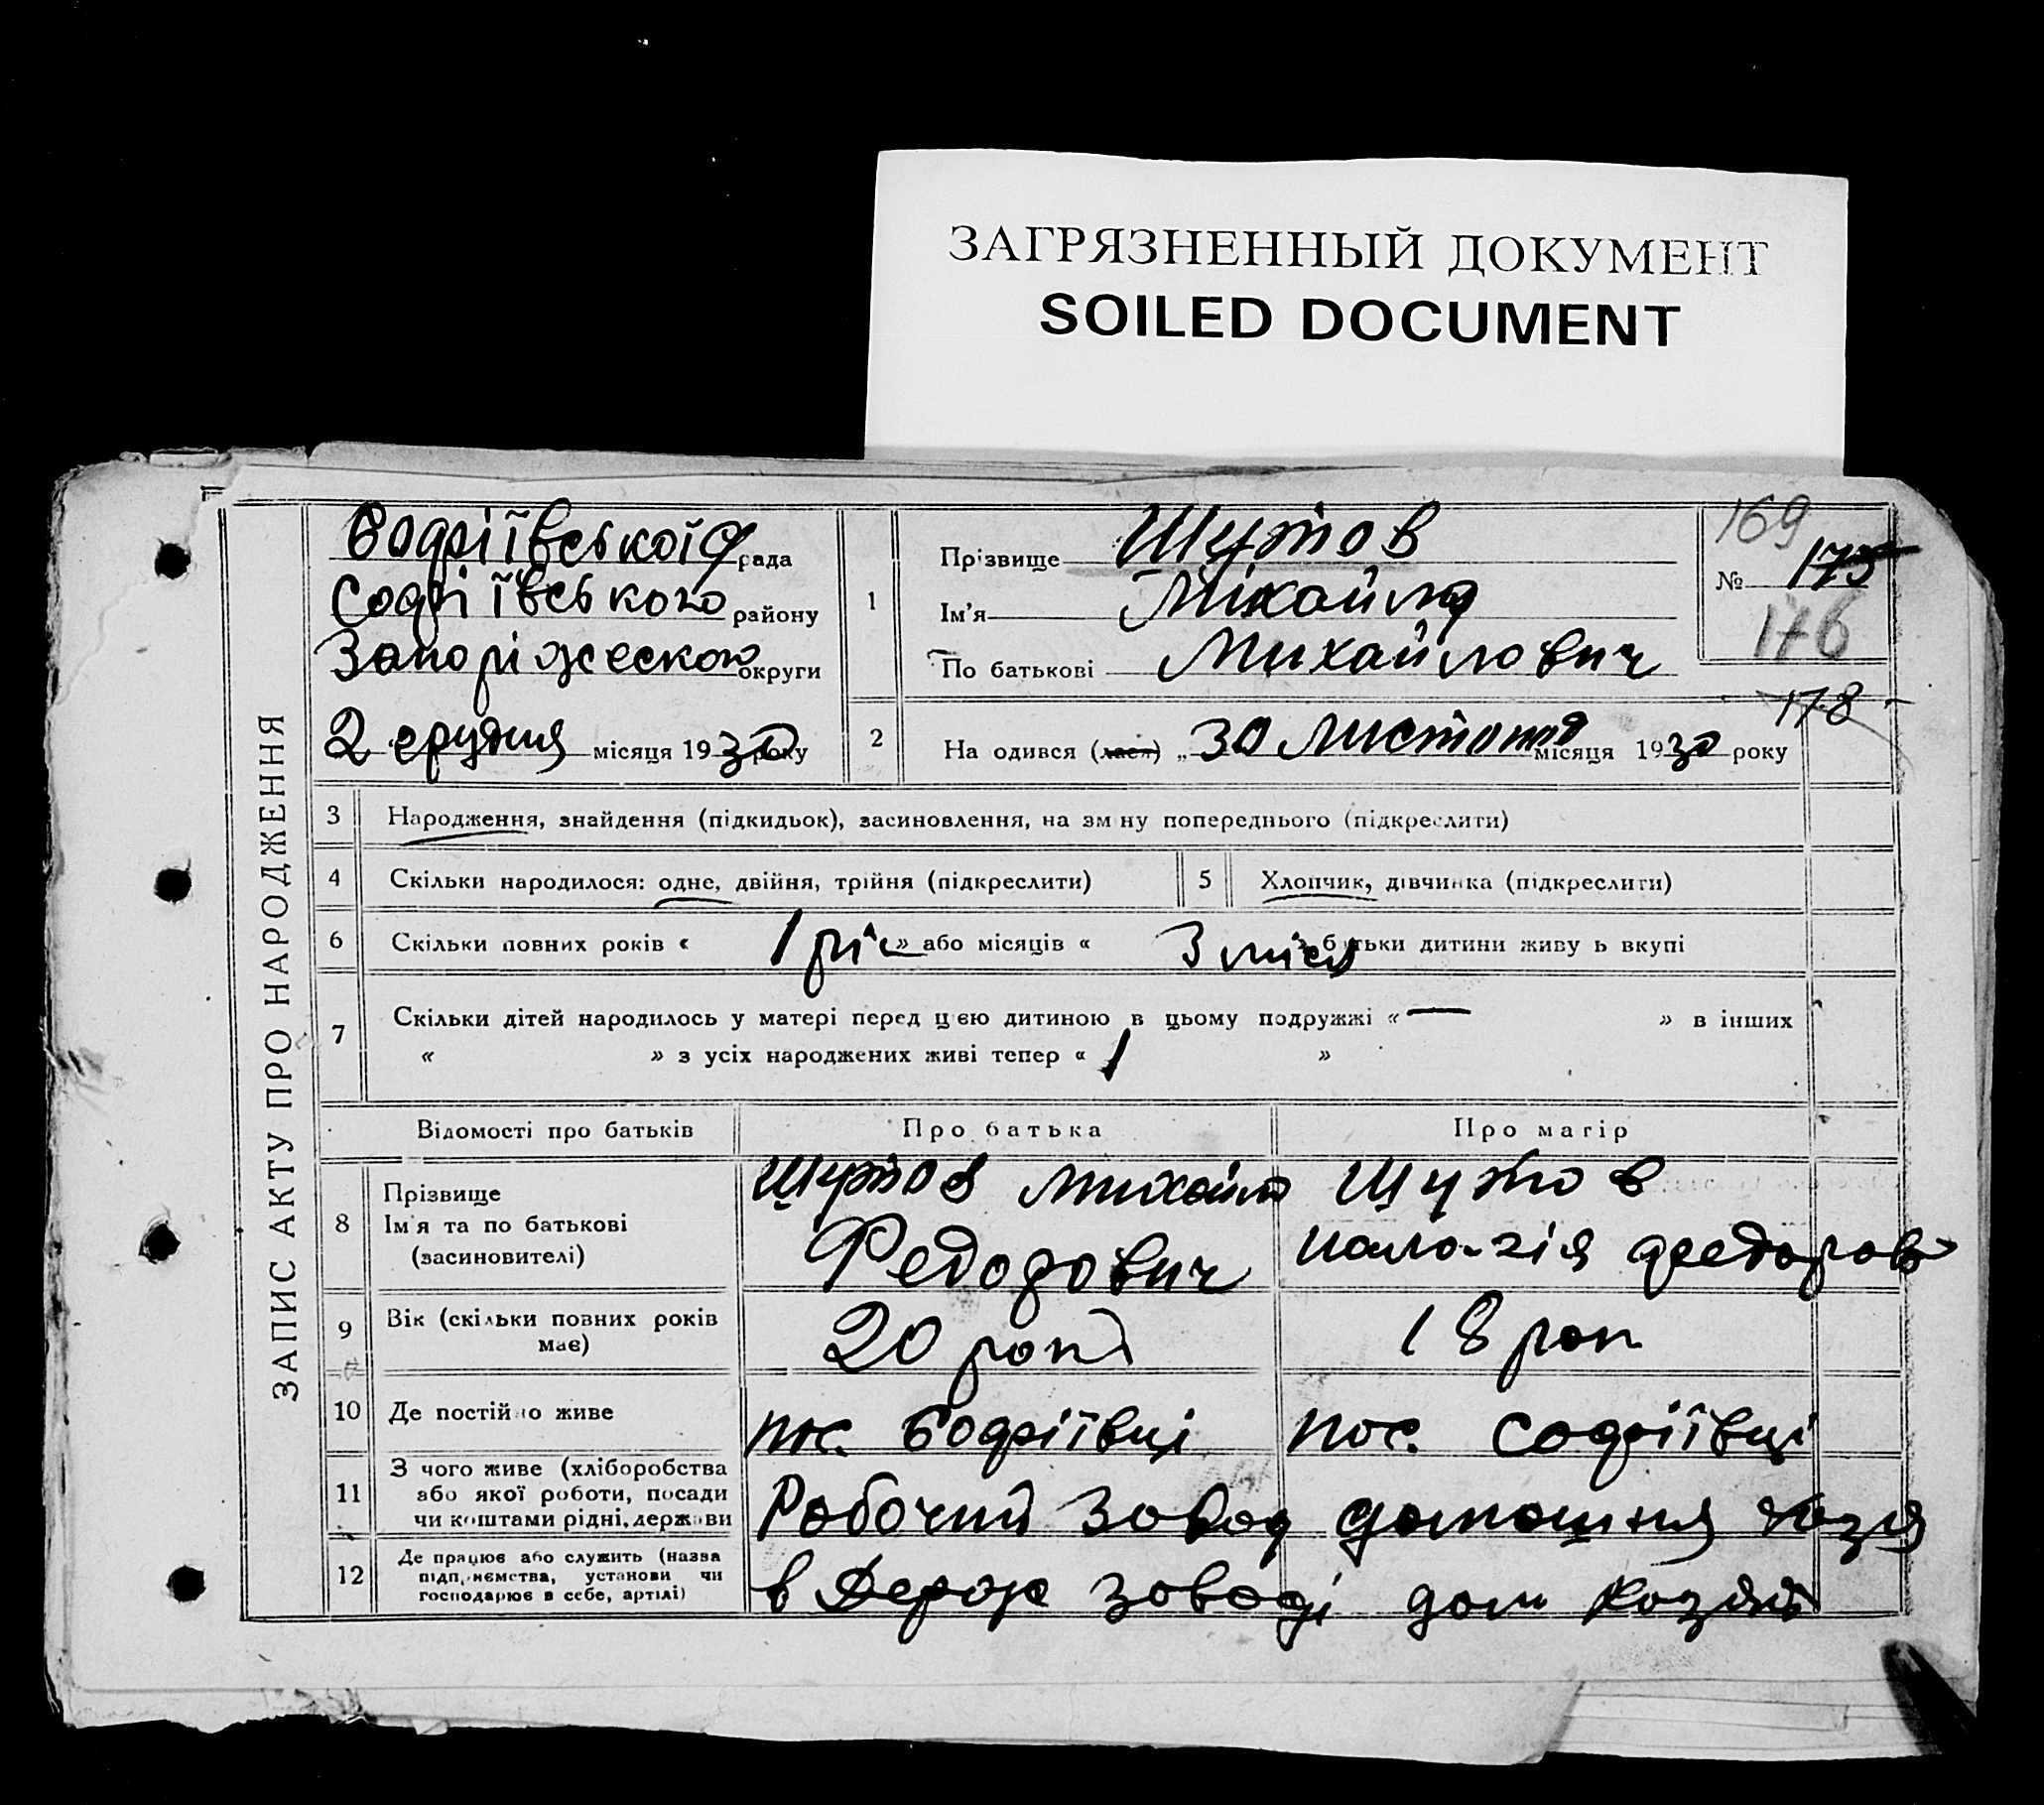 ЗАГРЯЗНЕННЫЙ ДОКУМЕНТ
SOILED DOCUMENT
ЗАПИС АКТУ ПРО НАРОДЖЕННЯ
Софіївської рада
Софіївського району
округи
2 грудня місяця 1930 року
1
Прізвище Шутов
Ім'я Міхайло
По батькові Михайлович
169
№ 175
176
178
2 На одився (лася) „ 30 листопад місяця 1930 року
3 Народження, знайдення (підкидьок), засиновлення, на зм ну попереднього (підкреслити)
4 Скільки народилося: одне, двійня, трійня (підкреслити) 5 Хлопчик, дівчинка (підкреслити)
6 Скільки повних років « 1 рік » або місяців « 3 місяц » батьки дитини живу ь вкупі
7 Скільки дітей народилось у матері перед цією дитиною в цьому подружжі « — » в інших
« » з усіх народжених живі тепер « 1 »
Відомості про батьків Про батька Про матір
8 Прізвище
Ім'я та по батькові
(засиновителі)
Шутов Михайло
Федорович
Шутов
федоров
9 Вік (скільки повних років
має)
20 рокі
18 рок
10 Де постійно живе пос. Софіївці пос. Софіївці
11 З чого живе (хліборобства
або якої роботи, посади
чи коштами рідні, держави
Робочий Завод домошня хазя
12 Де працює або служить (назва
підприємства, установи чи
господарює в себе, артілі)
в Держ заводі дом